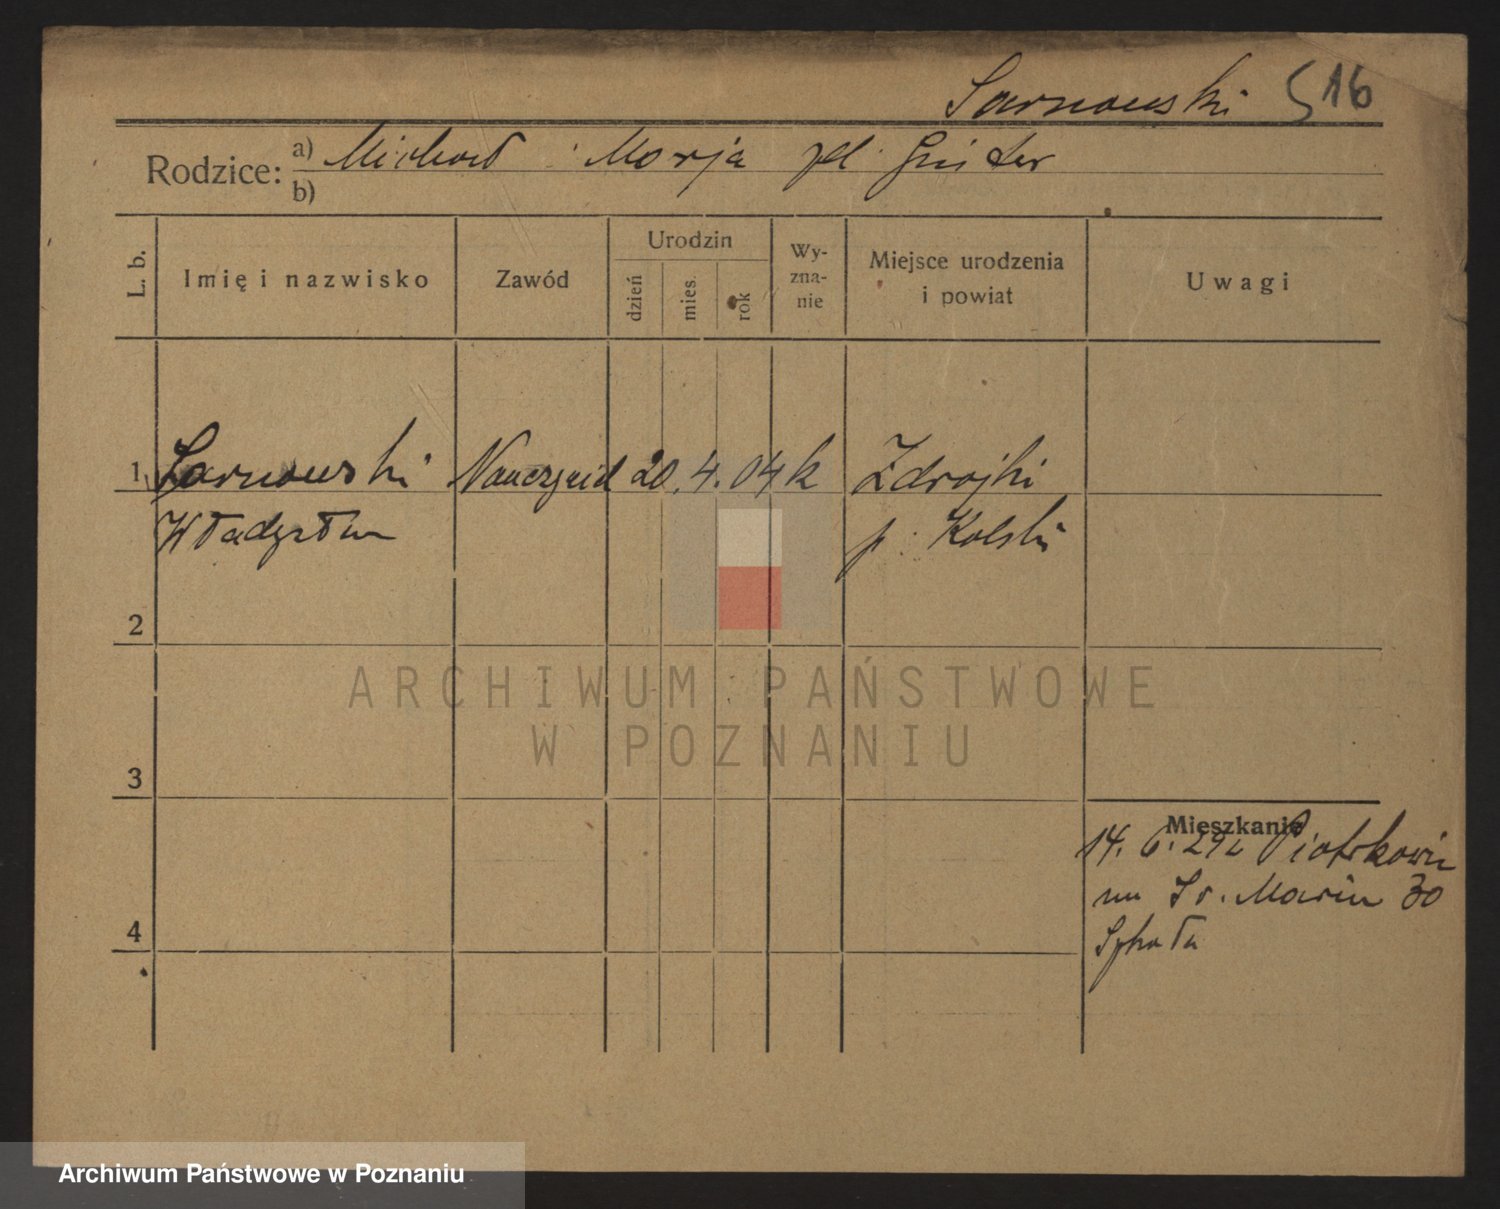 Sarnowski 516
Rodzice: a) Michał Marja
b)
L. b.
Imię i nazwisko
Zawód
Urodzin
dzień
mies.
rok
Wy-
zna-
nie
Miejsce urodzenia
i powiat
Uwagi
1 Sarnowski Nauczyciel 20. 4. 04 k Zdrojki
Władysław p. Kolski
2
ARCHIWUM PAŃSTWOWE
W POZNANIU
3
Mieszkanie
14. 6. 29 Piotrkowic
Św. Marcin 30
Szkoła
4
Archiwum Państwowe w Poznaniu